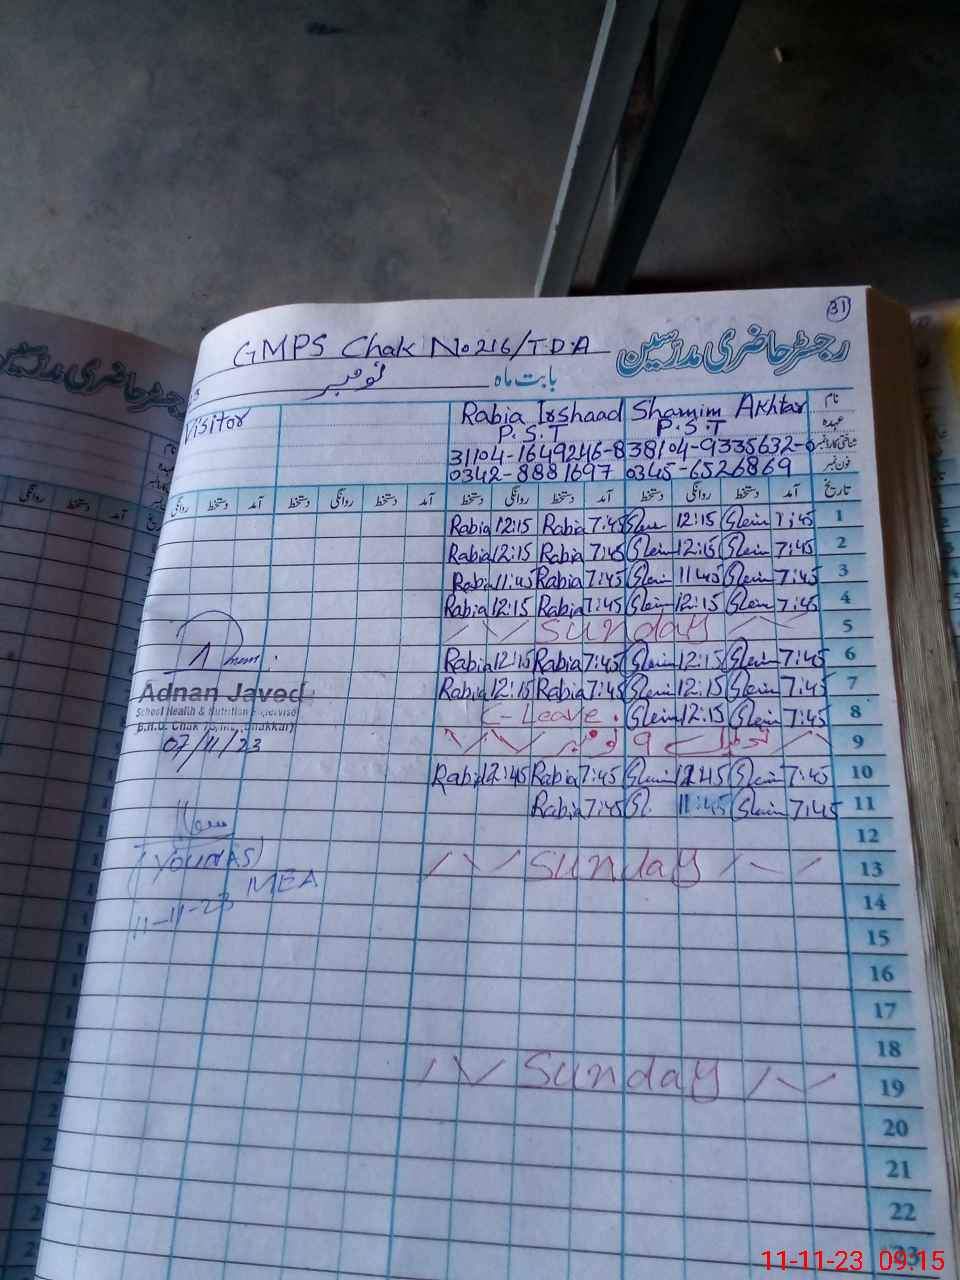 31
GMPS Chak No 216/T.D.A رجسٹر حاضری مدرسین
بابت ماہ نومبر
Visitor Rabia Irshaad Shamim Akhtar نام
P.S.T P.S.T عہدہ
31104-1649246-8 38104-9335632-0 شناختی کارڈ نمبر
0342-8881697 0345-6526869 فون نمبر
روانگی دستخط آمد دستخط روانگی دستخط آمد دستخط روانگی دستخط آمد دستخط روانگی دستخط آمد تاریخ
Rabia 12:15 Rabia 7:45 12:15 7:45 1
Rabia 12:15 Rabia 7:45 12:15 7:45 2
Rabia 11:45 Rabia 7:45 11:45 7:45 3
Rabia 12:15 Rabia 7:45 12:15 7:45 4
Sunday 5
Rabia 12:15 Rabia 7:45 12:15 7:45 6
Rabia 12:15 Rabia 7:45 12:15 7:45 7
C-Leave. 12:15 7:45 8
9 نومبر 9
Rabia 12:45 Rabia 7:45 12:45 7:45 10
Rabia 7:45 11:45 7:45 11
12
Sunday 13
14
15
16
17
18
Sunday 19
20
21
22
23
Adnan Javed
School Health & Nutrition Supervisor
07/11/23
(YOUNAS)
MEA
11-11-23
11-11-23 09:15